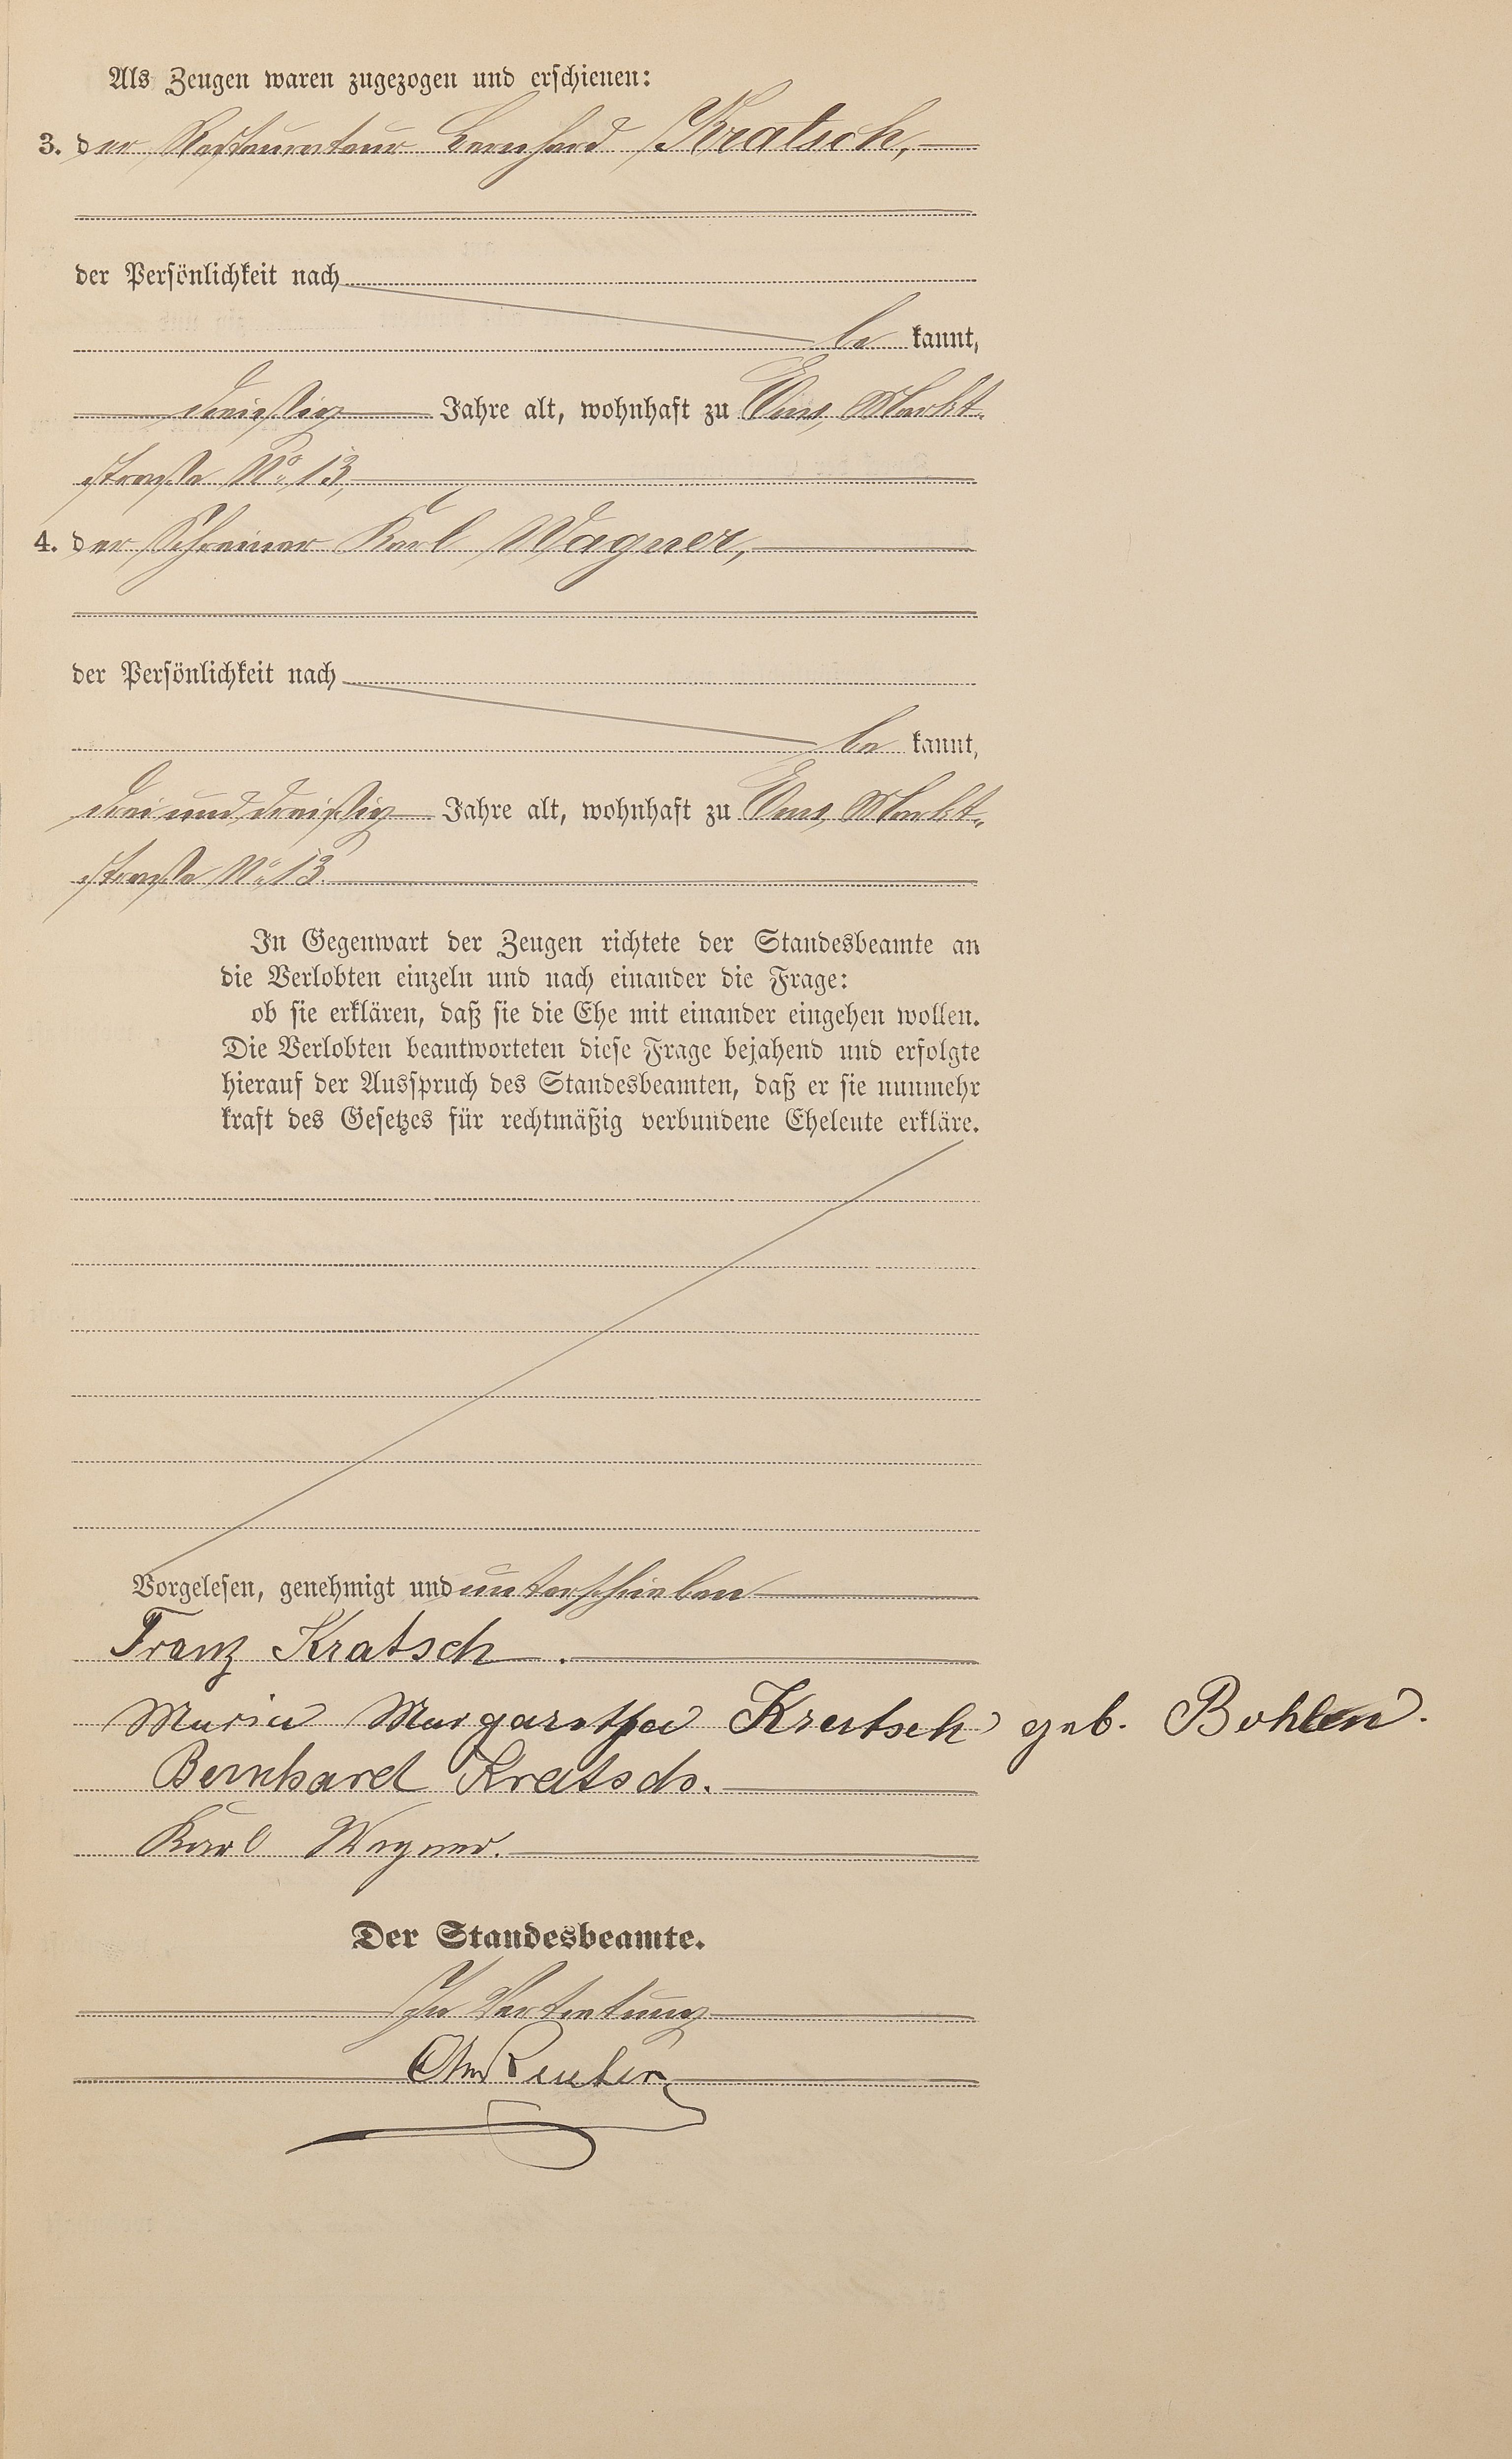 Als Zeugen waren zugezogen und erschienen:
3. der Restaurateur Bernhard Kratsch,
der Persönlichkeit nach
be kannt,
dreißig Jahre alt, wohnhaft zu Ems, Markt-
straße No. 13,
4. der Schreiner Karl Wagner,
der Persönlichkeit nach
be kannt,
drei und dreißig Jahre alt, wohnhaft zu Ems, Markt-
straße No. 13.
In Gegenwart der Zeugen richtete der Standesbeamte an
die Verlobten einzeln und nach einander die Frage:
ob sie erklären, daß sie die Ehe mit einander eingehen wollen.
Die Verlobten beantworteten diese Frage bejahend und erfolgte
hierauf der Ausspruch des Standesbeamten, daß er sie nunmehr
kraft des Gesetzes für rechtmäßig verbundene Eheleute erkläre.
Vorgelesen, genehmigt und unterschrieben
Franz Kratsch.
Maria Margaretha Kratsch geb. Bohlen.
Bernhard Kratsch.
Karl Wagner.
Der Standesbeamte.
In Vertretung
Reuter